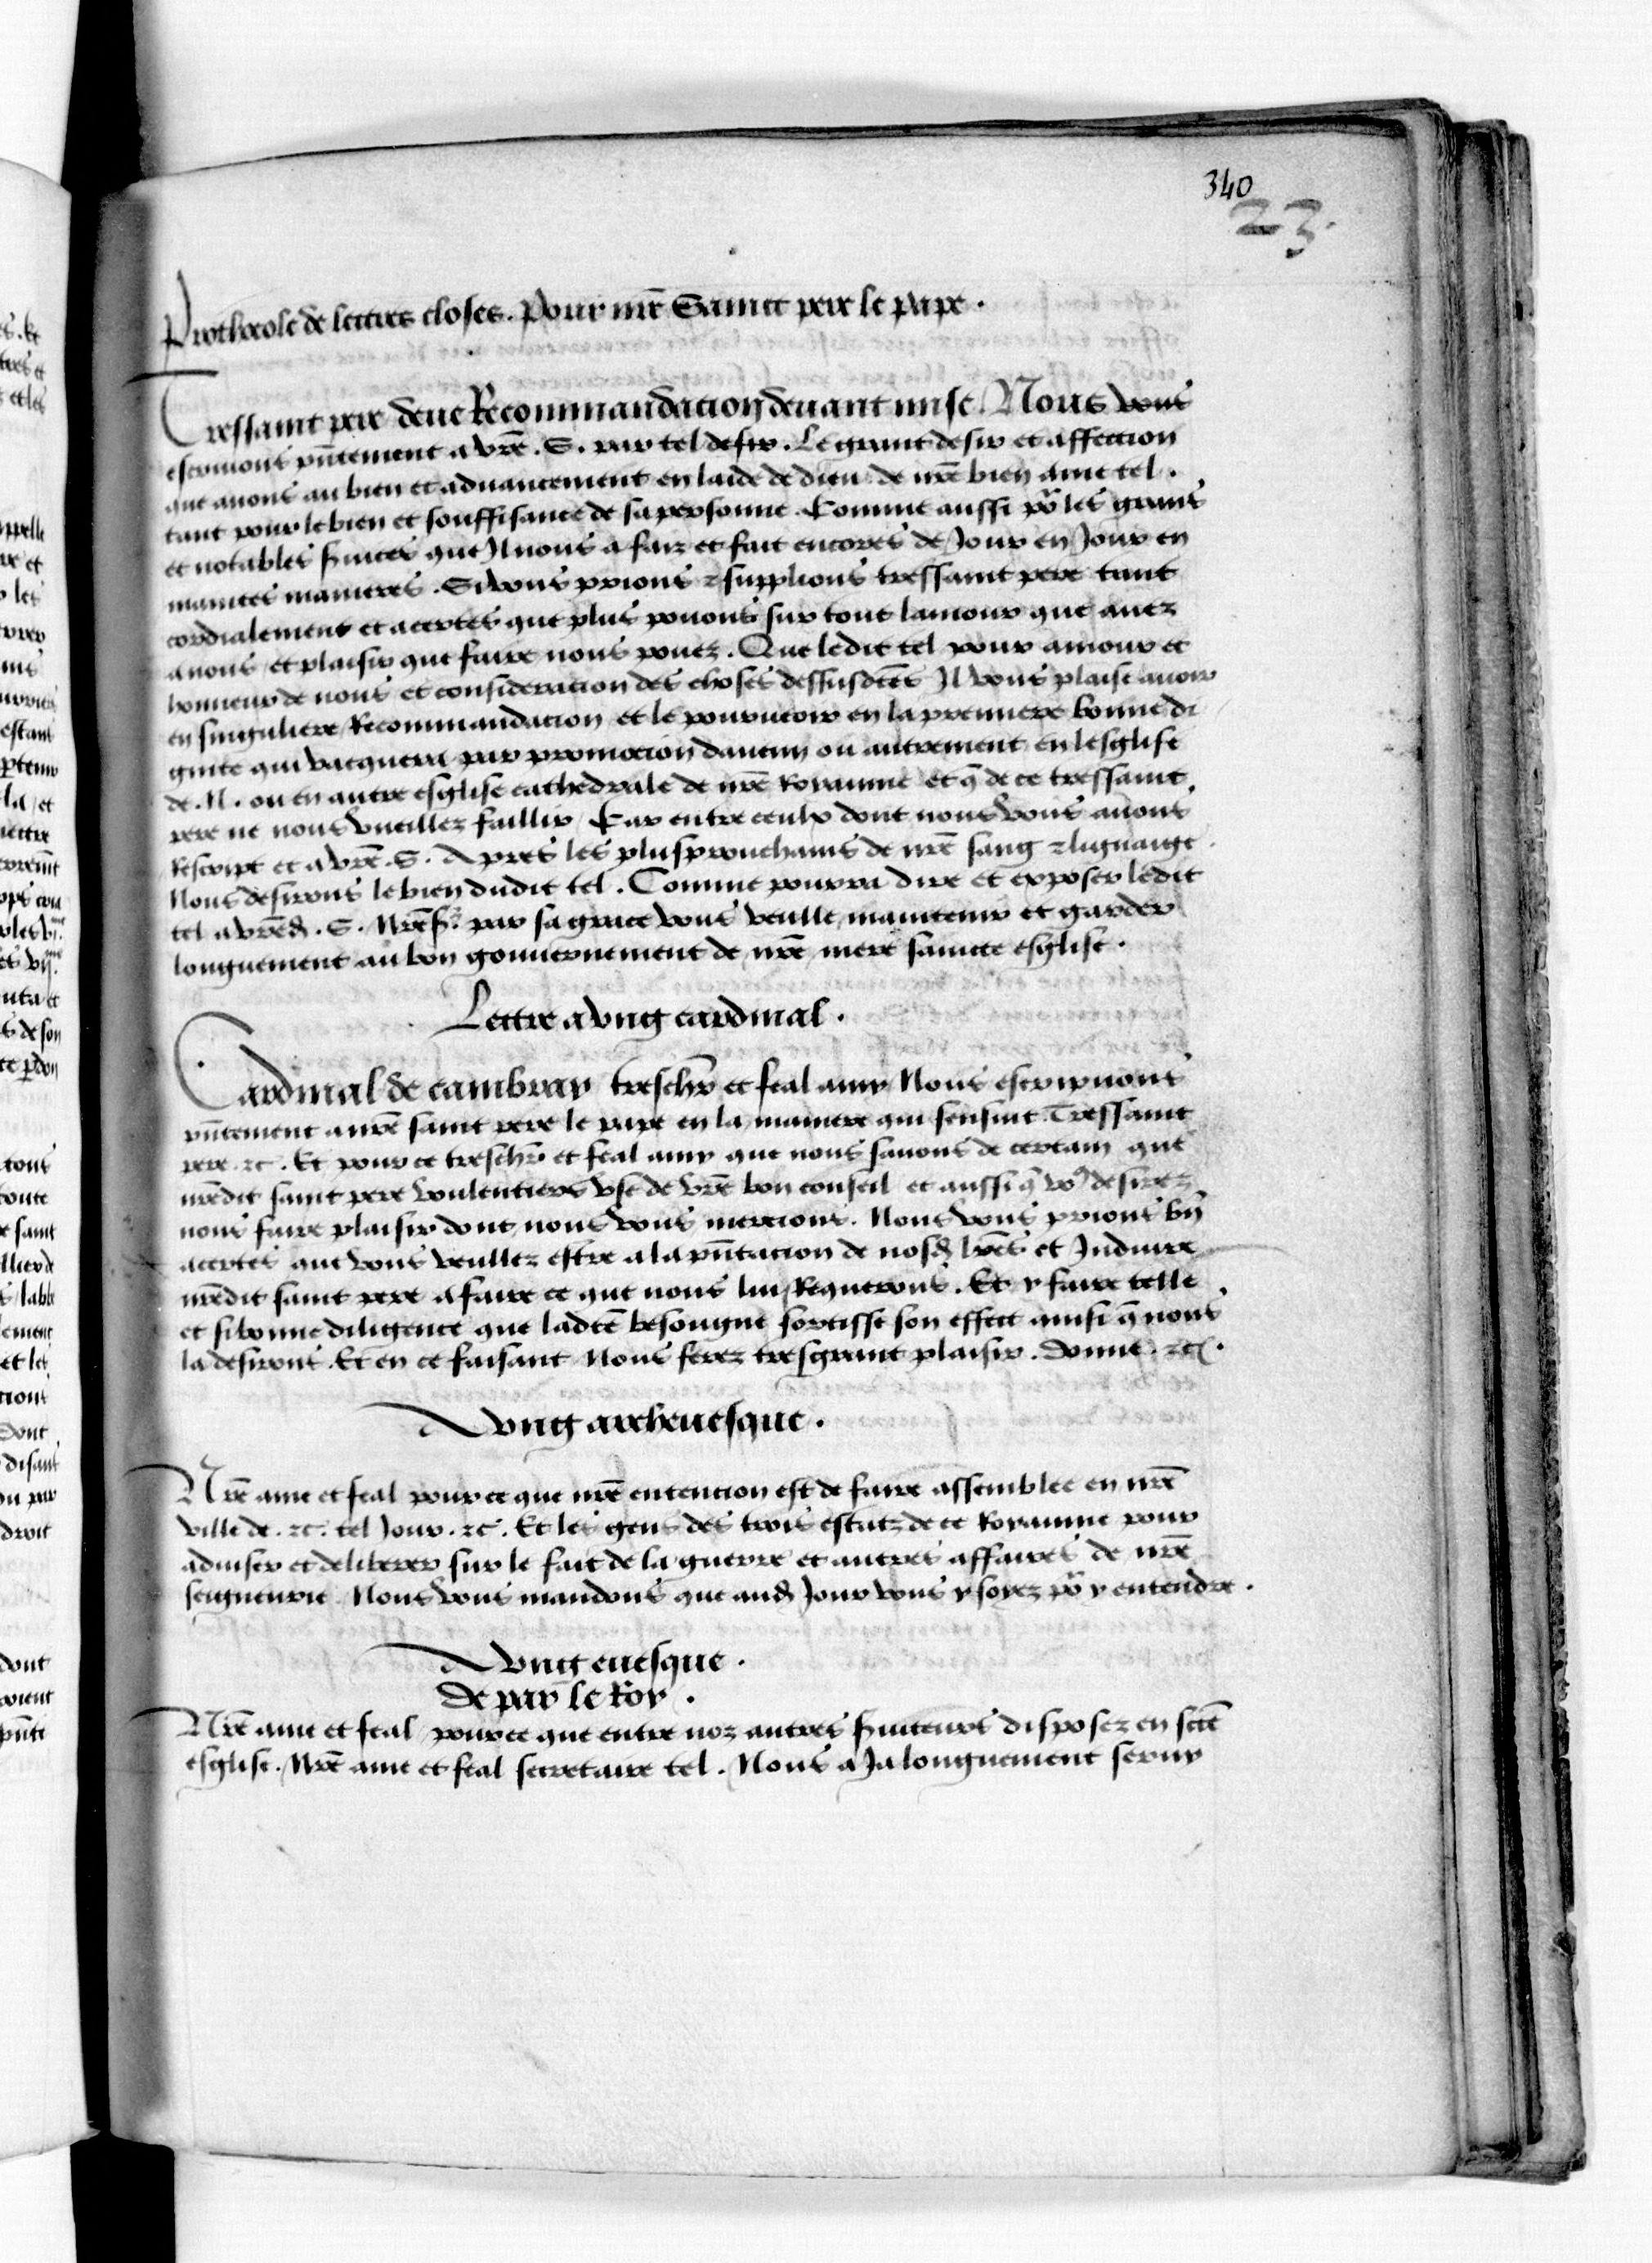 340
23.
Prothecole de lettres closes. Pour nr̃e Sainct pere le pape.
Tressaint pere deue Recommandacion deuant mise. Nous vous
escripuons pñtement a vr̃e. S. par tel desir. Le grant desir et affection
que auons au bien et aduancement en laide de dieu de nr̃e bien ame tel.
tant pour le bien et souffisance de sa personne. Comme aussi po' les grans
et notables s̃uices que Il nous a faiz et fait encores de Jour en Jour en
maintes manieres. Si vous prions ⁊ supplions tressaint pere tant
cordialement et acertes que plus pouons sur tout lamour que auez
a nous et plaisir que faire nous pouez. Que ledit tel pour amour et
honneur de nous et consideracion des choses dessusdc̃es Il vous plaise auoir
en singuliere Recommandacion et le pourueoir en la premiere bonne di
gnite qui vacquera par promocion daucun ou autrement en lesglise
de. N. ou en autre esglise cathedrale de nr̃e Royaume et q̃ de ce tressaint
pere ne nous vueillez faillir. Car entre ceulx dont nous vous auons
Rescript et a vr̃e. S. Apres les plusprouchains de nr̃e sang ⁊ lignaige.
Nous desirons le bien dudit tel. Comme pourra dire et exposer ledit
tel a vr̃ed̃. S. Nr̃es̃r. par sa grace vous veulle maintenir et garder
longuement au bon gouuernement de nr̃e mere saincte esglise.
Lettre a vng cardinal.
Cardinal de cambray treschr̃ et feal amy Nous escripuons
pñtement a nr̃e saint pere le pape en la maniere qui sensuit. Tressaint
pere ⁊c. Et pour ce treschr̃ et feal amy que nous sauons de certain que
nr̃edit saint pere voulentiers vse de vr̃e bon conseil et aussi q̃ vo9 desirez
nous faire plaisir dont nous vous mercions. Nous vous prions bñ
acertes que vous veullez estre a la pñtacion de nosd̃ lr̃es et Induire
nr̃edit saint pere a faire ce que nous lui Requerons. Et y faire telle
et si bonne diligence que ladc̃e besongne sortisse son effect ainsi q̃ nous
la desirons. Et en ce faisant Nous ferez tresgrant plaisir. Donne. ⁊c.
A vng archeuesque.
Nr̃e ame et feal pour ce que nr̃e entencion est de faire assemblee en nr̃e
ville de. ⁊c. tel Jour. ⁊c. Et les gens des trois estatz de ce Royaume pour
aduiser et deliberer sur le fait de la guerre et autres affaires de nr̃e
seigneurie. Nous vous mandons que aud̃ Jour vous y soyez po' y entendre.
A vng euesque.
De par le Roy.
Nr̃e ame et feal pource que entre noz autres s̃uiteurs disposez en sc̃te
esglise. Nr̃e ame et feal secretaire tel. Nous a Ja longuement seruy